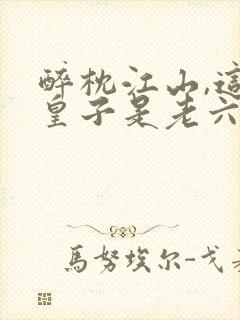 醉枕江山,這
皇子是老六
馬努埃尔-戈